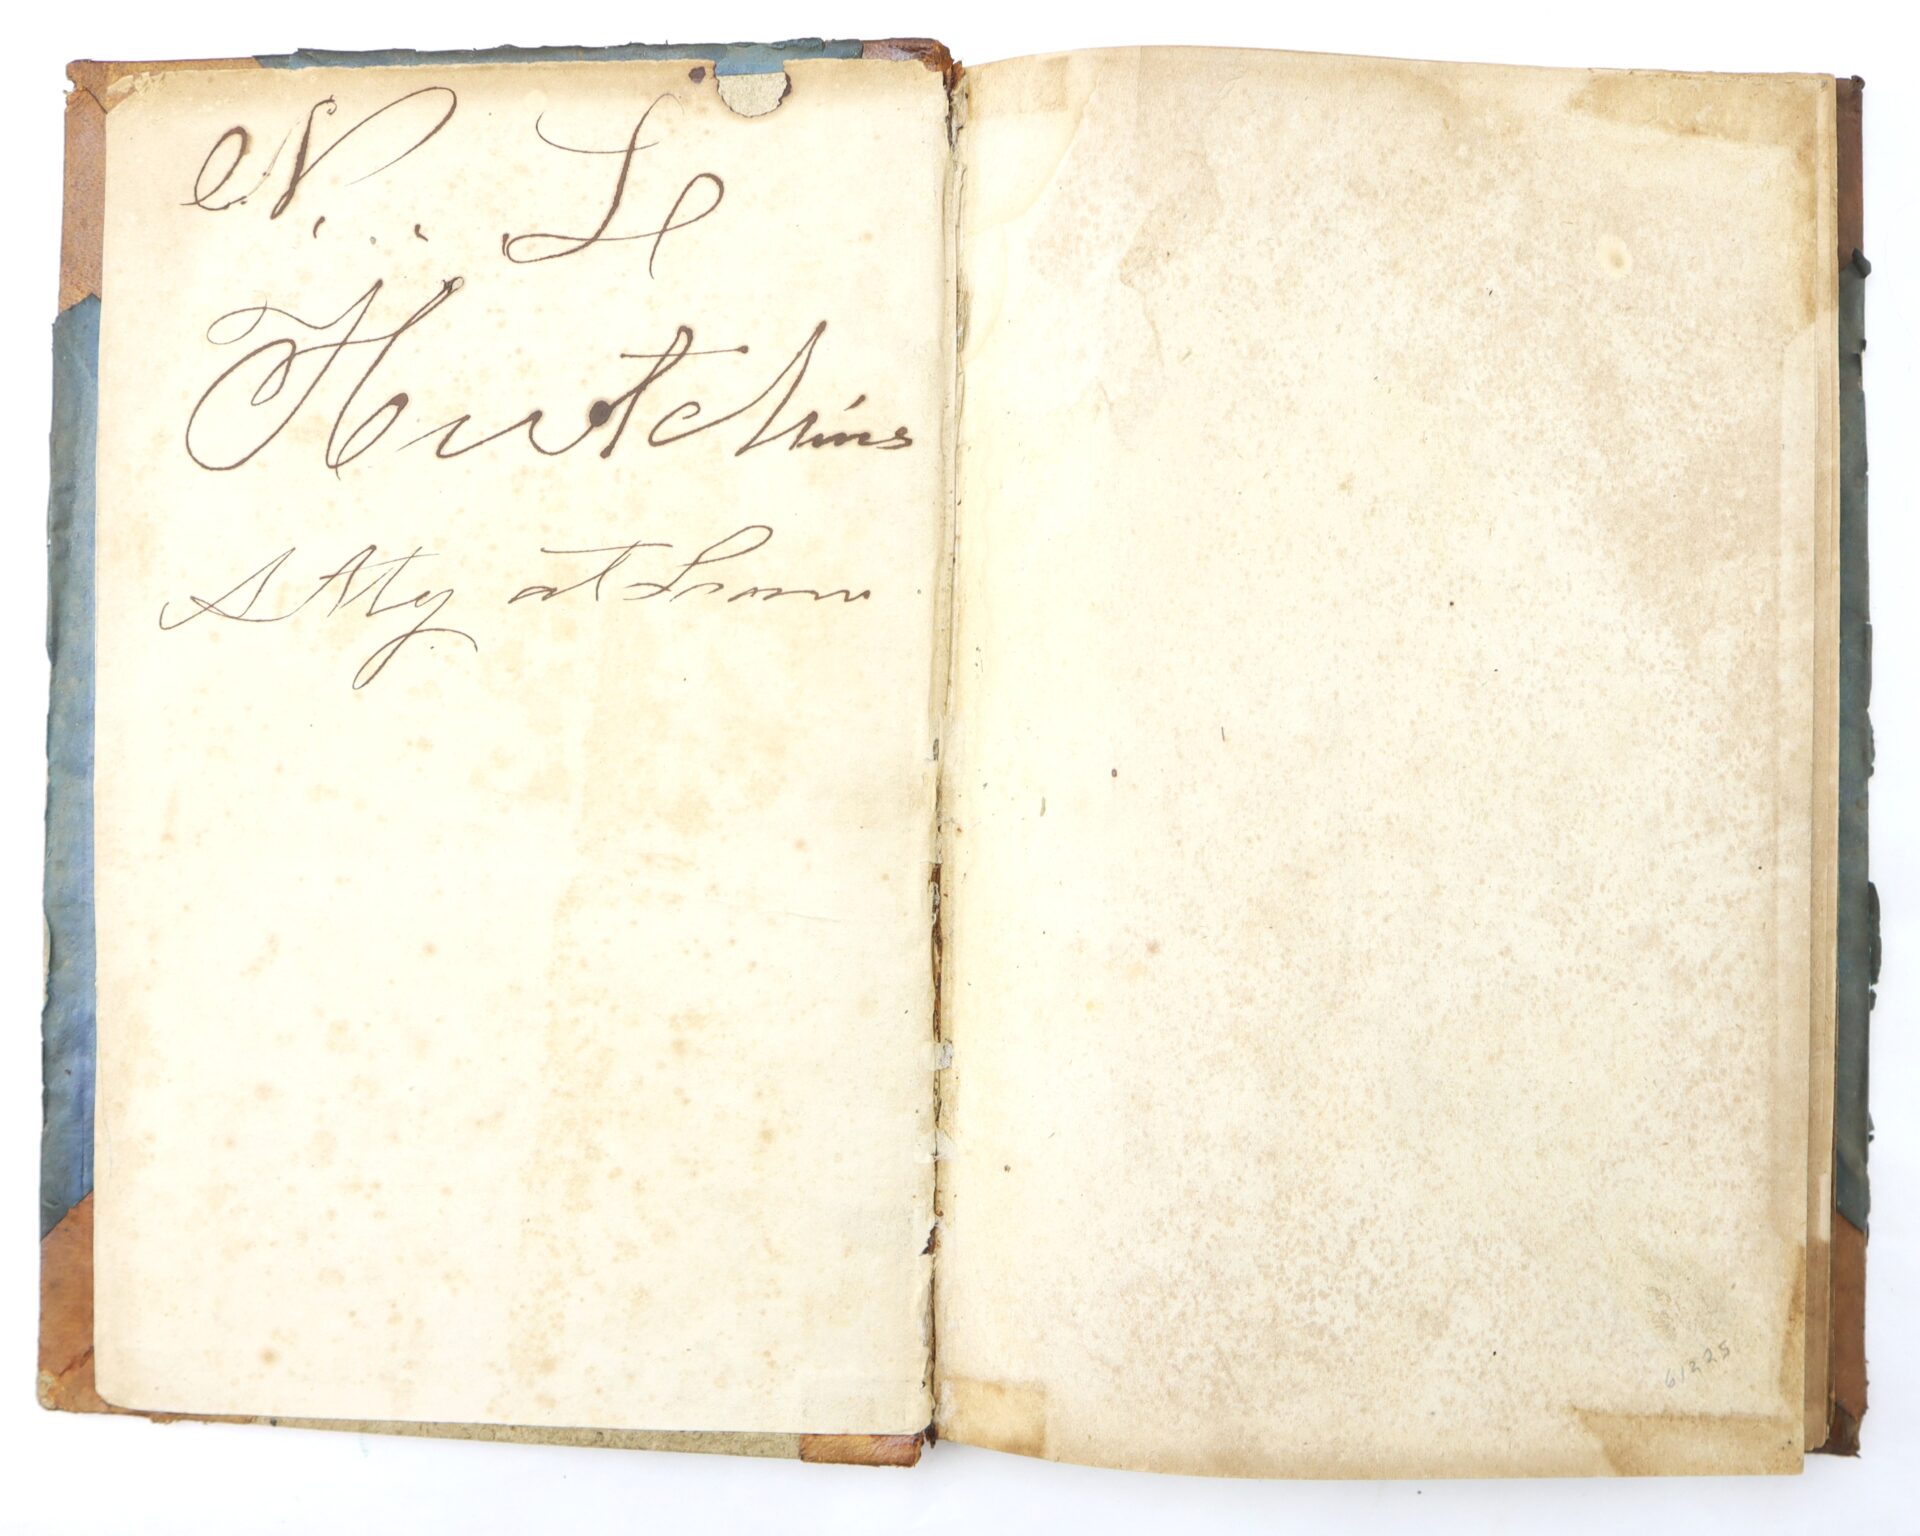 N. L
Hutchins
Atty at Law
61225